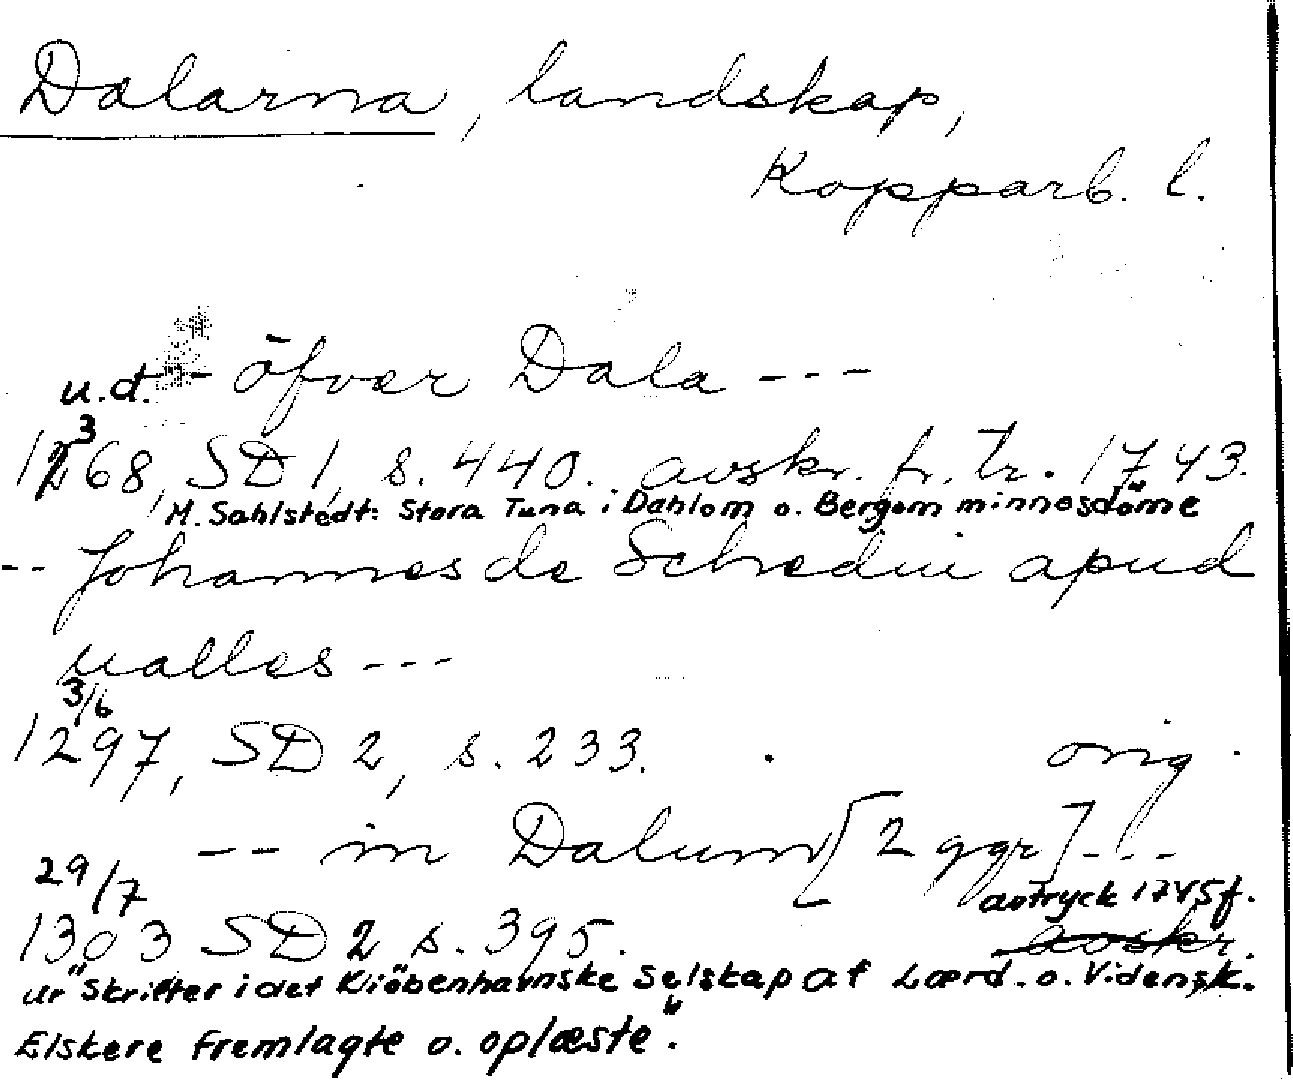 Dalarna, landskap,
Kopparb. l.
u.d. - öfver Dala ---
1368, SD 1, s. 440. avskr. fr. tr. 1743.
M. Sahlstedt: Stora Tuna i Dahlom o. Bergom minnesdöme"
-- Johannes de Schedui apud
ualles ---
3/6
1297, SD 2, s. 233. orig.
-- in Dalum [2 ggr] ---
29/7 avtryck 1745 f.
1303 SD 2 s. 395. avskr.
ur "Skrifter i det Kiöbenhavnske Selskap af Lærd. o. Vidensk.
Elskere fremlagte o. oplæste".